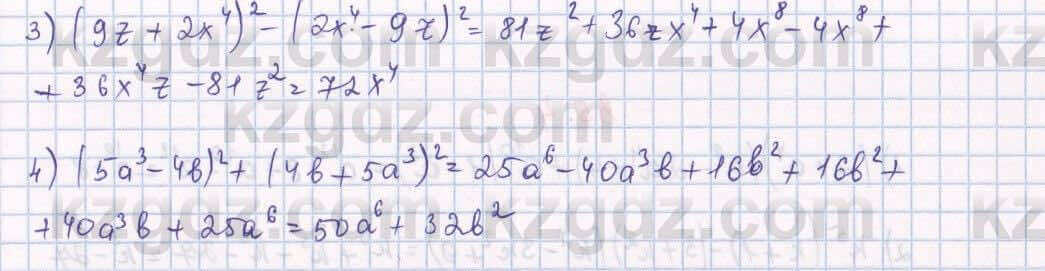 3) (9z + 2x⁴)² - (2x⁴ - 9z)² = 81z² + 36zx⁴ + 4x⁸ - 4x⁸ +
+ 36x⁴z - 81z² = 72x⁴
4) (5a³ - 4b)² + (4b + 5a³)² = 25a⁶ - 40a³b + 16b² + 16b² +
+ 40a³b + 25a⁶ = 50a⁶ + 32b²
kzgdz.com